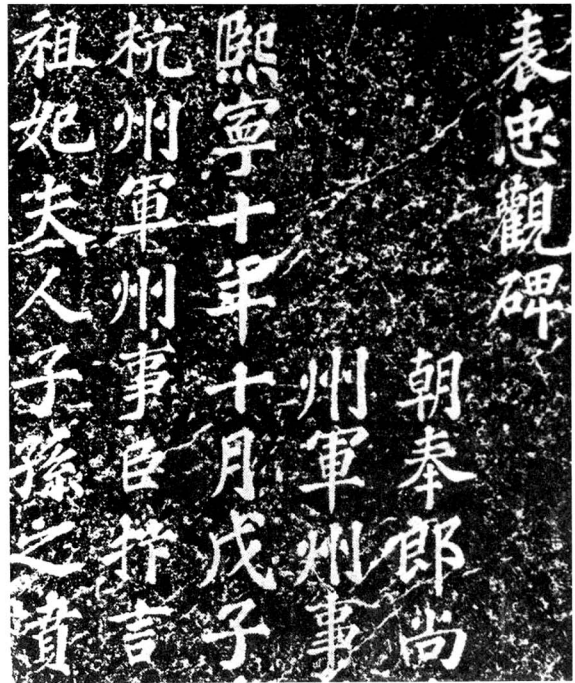 表忠觀碑
朝奉郎尚
州軍州事
熙寧十年十月戊子
杭州軍州事臣抃言
祖妃夫人子孫之墳